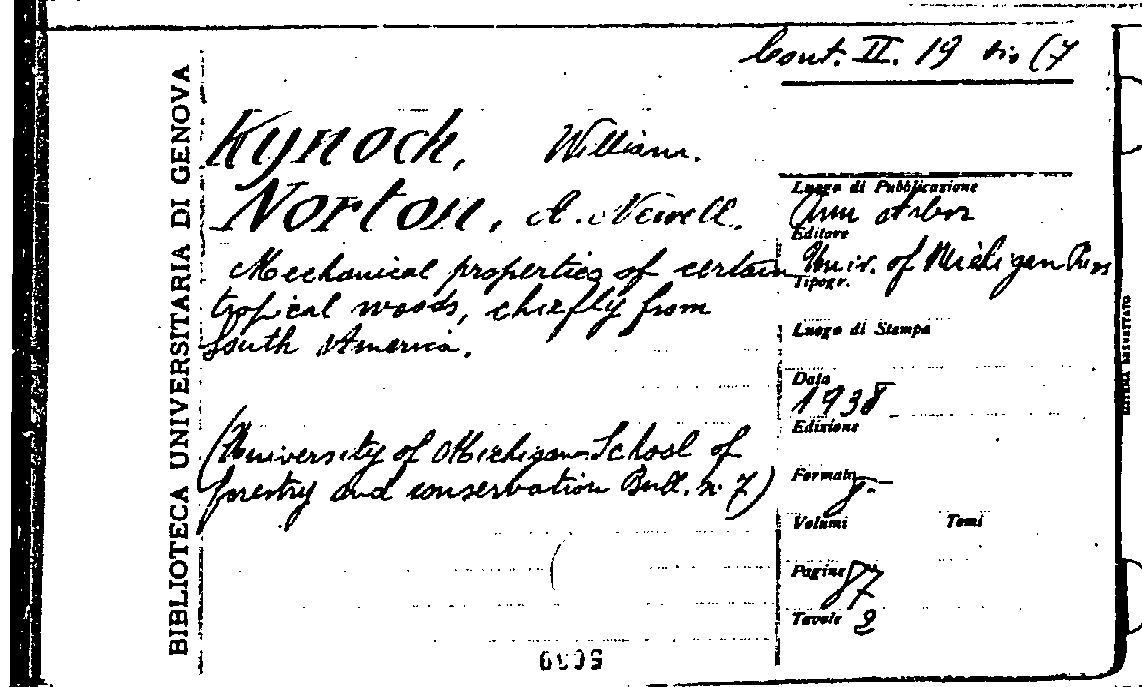 Cont. II. 19 bis (7
BIBLIOTECA UNIVERSITARIA DI GENOVA
Kynoch, William.
Norton, A. Newell.
Mechanical properties of certain
tropical woods, chiefly from
South America.
(University of Michigan School of
forestry and conservation Bull. n. 7)
Luogo di Pubblicazione
Ann Arbor
Editore
Univ. of Michigan Press
Tipogr.
Luogo di Stampa
Data
1938
Edizione
Formato 8.
Volumi Tomi
Pagine 87
Tavole 2